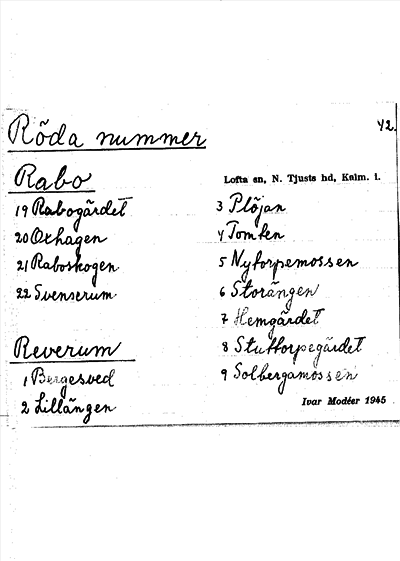 42.
Röda nummer
Rabo
19 Rabogärdet
20 Oxhagen
21 Raboskogen
22 Svenserum
Reverum
1 Bergesved
2 Lillängen
Lofta sn, N. Tjusts hd, Kalm. l.
3 Plöjan
4 Tomten
5 Nytorpemossen
6 Storängen
7 Hemgärdet
8 Stuttorpegärdet
9 Solbergamossen
Ivar Modéer 1945